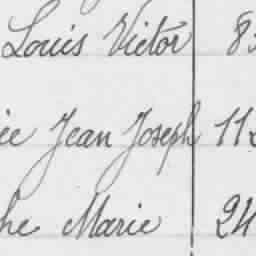 Louis Victor 8
ée Jean Joseph 112
he Marie 24